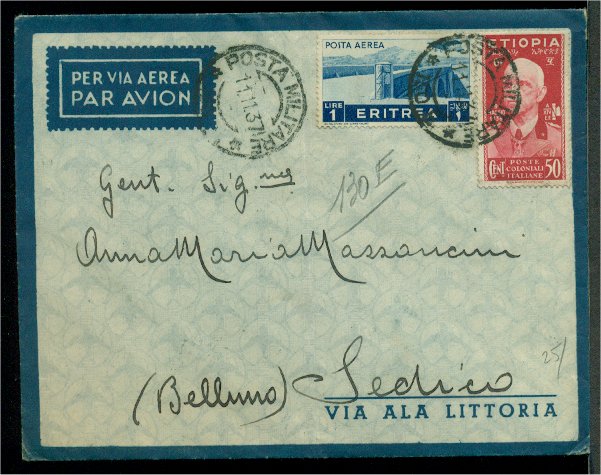 PER VIA AEREA
PAR AVION
POSTA MILITARE
11.11.37
POSTA AEREA
LIRE 1 ERITREA 1
ETIOPIA
POSTE
COLONIALI
ITALIANE
CENT 50
Gent. Sig.na
130 E
Anna Maria Massancini
25/
(Belluno) Sedico
VIA ALA LITTORIA